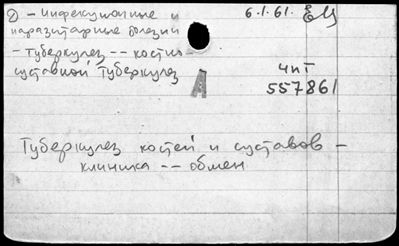 D - инфекционные и
паразитарные болезни
- туберкулез -- костно-
суставной туберкулез
6.1.61. ЕМ
А
ЧПТ
557861
Туберкулез костей и суставов -
клиника -- обмен